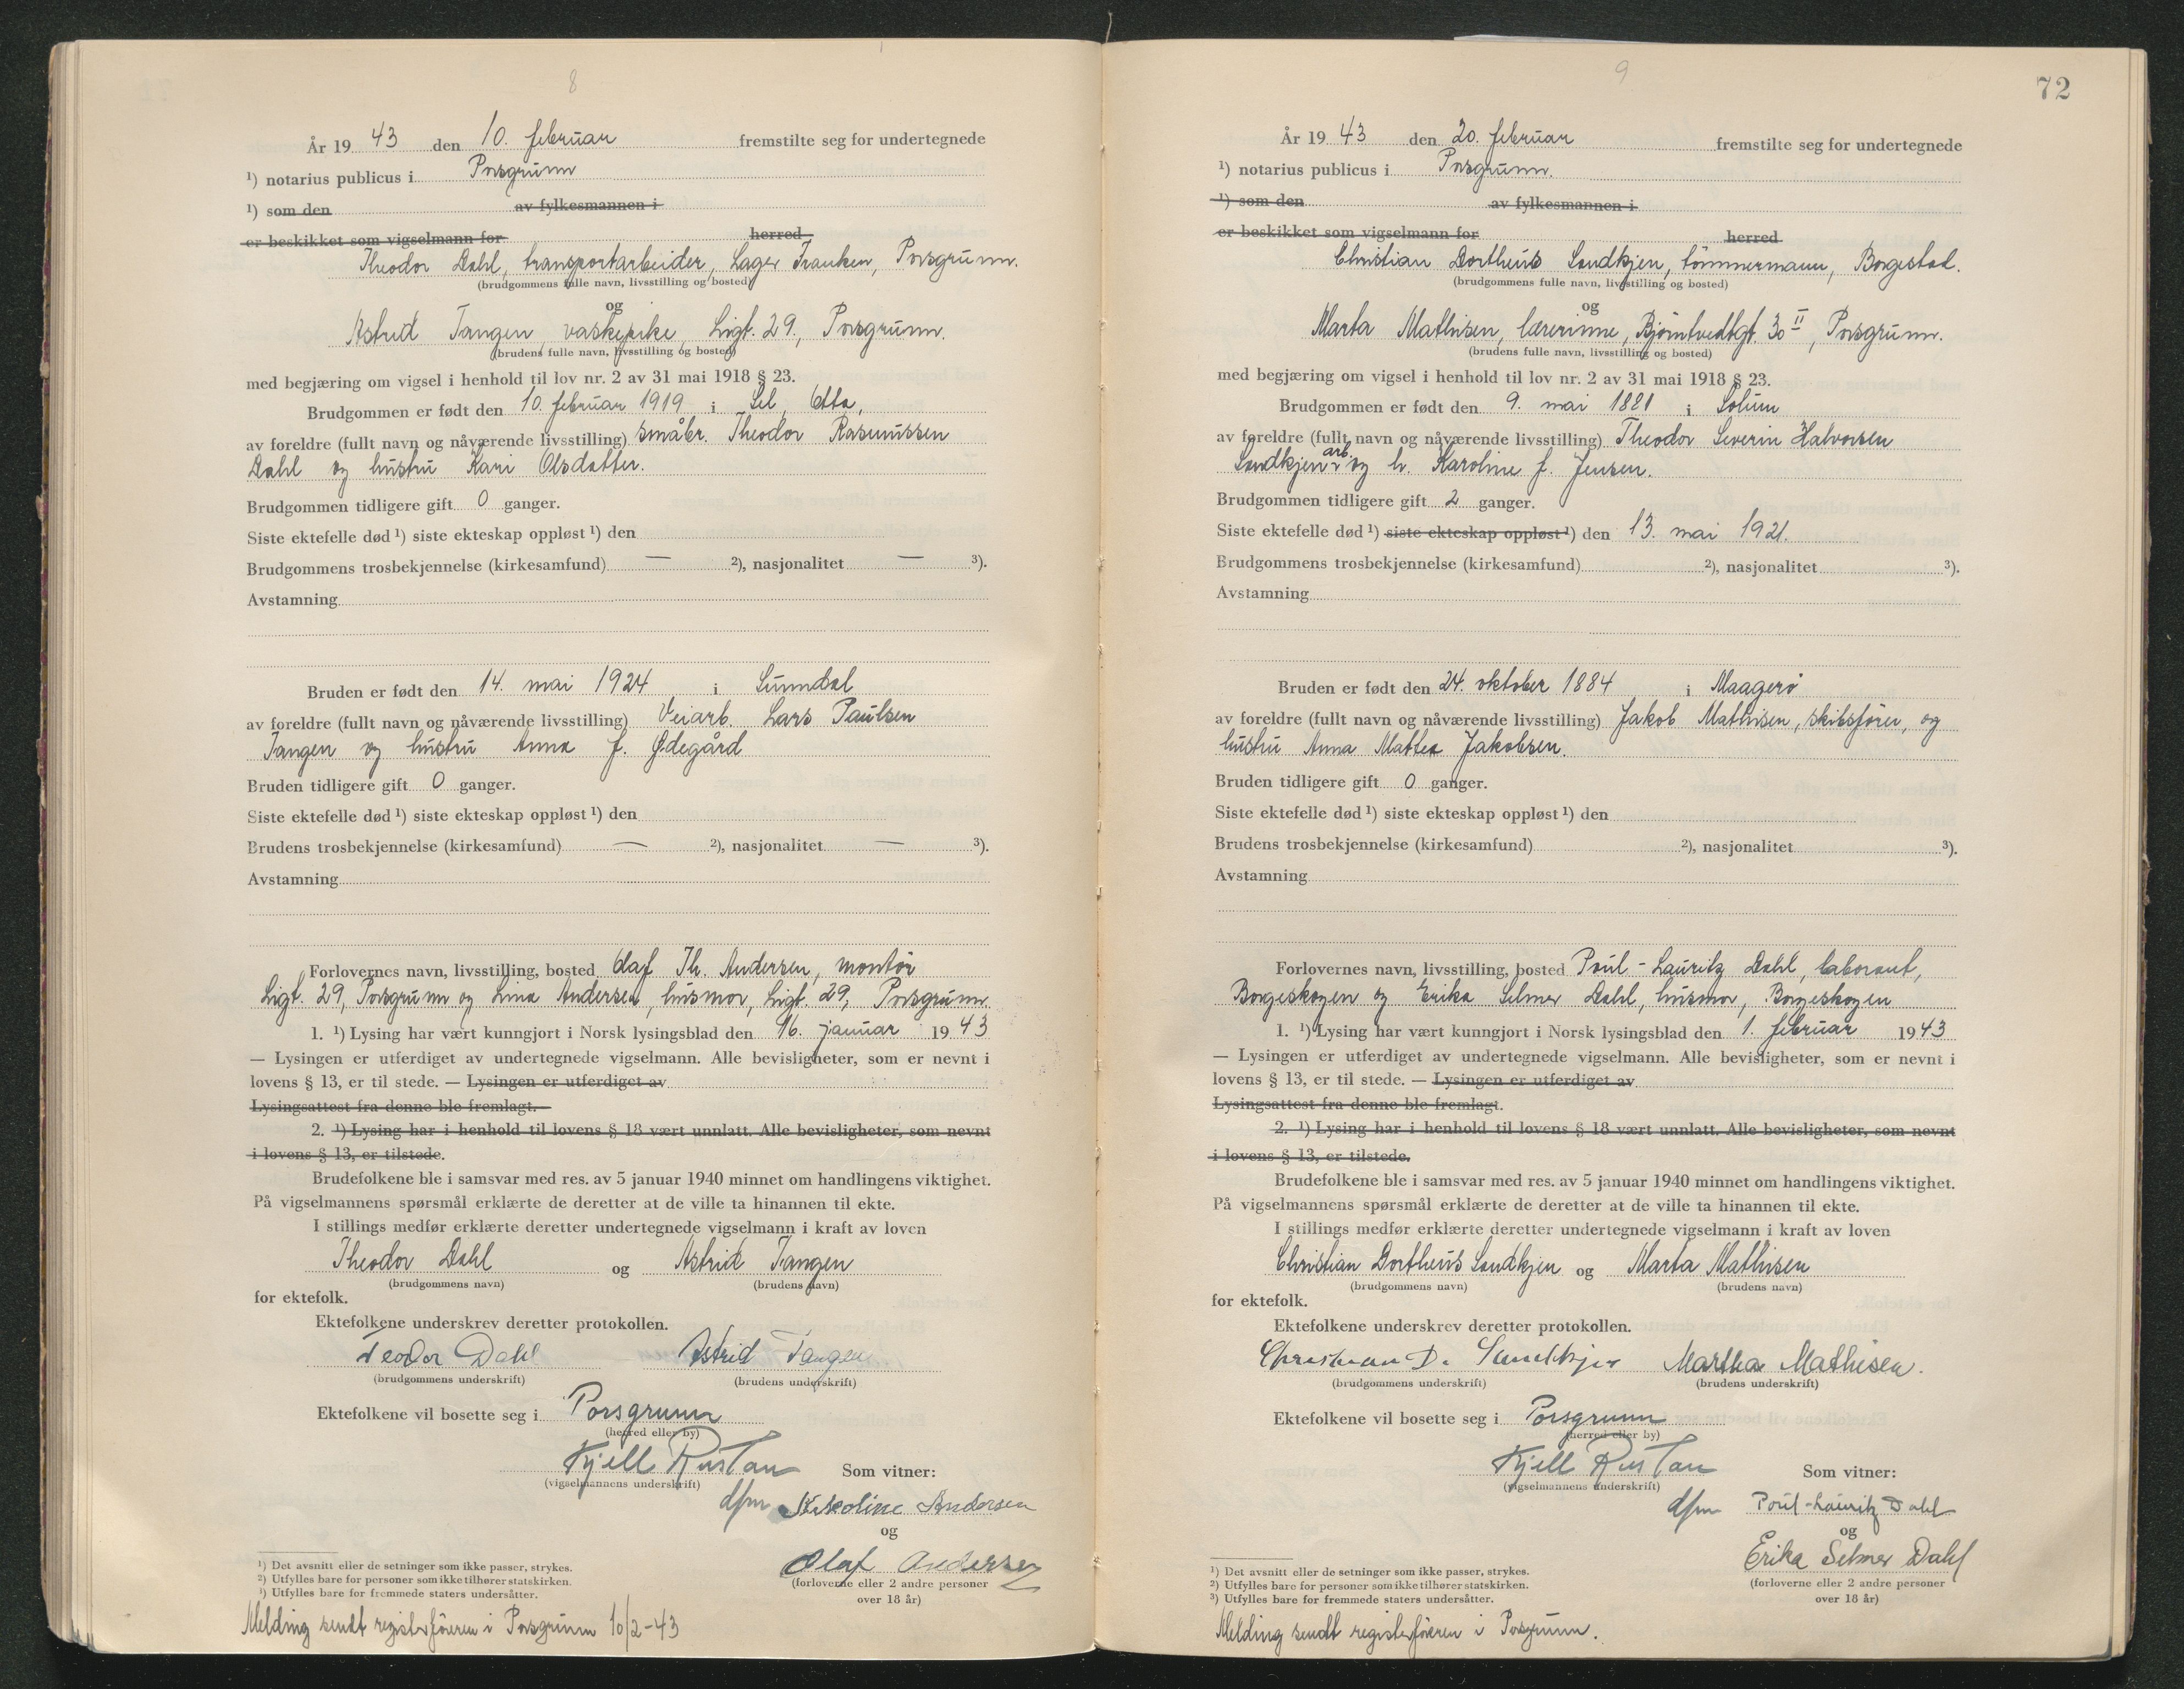 8
År 19 43 den 10. februar fremstilte seg for undertegnede
¹) notarius publicus i Porsgrunn
¹) som den av fylkesmannen i
er beskikket som vigselmann for herred
Theodor Dahl, transportarbeider, Lager Franken, Porsgrunn.
(brudgommens fulle navn, livsstilling og bosted)
og
Astrid Tangen, vaskepike, Ligt. 29., Porsgrunn.
(brudens fulle navn, livsstilling og bosted)
med begjæring om vigsel i henhold til lov nr. 2 av 31 mai 1918 § 23.
Brudgommen er født den 10. februar 1919 i Sel, Otta,
av foreldre (fullt navn og nåværende livsstilling) småbr. Theodor Rasmussen
Dahl og hustru Kari Olsdatter.
Brudgommen tidligere gift 0 ganger.
Siste ektefelle død ¹) siste ekteskap oppløst ¹) den
Brudgommens trosbekjennelse (kirkesamfund) — ²), nasjonalitet — ³).
Avstamning
Bruden er født den 14. mai 1924 i Sunndal
av foreldre (fullt navn og nåværende livsstilling) Veiarb. Lars Paulsen
Tangen og hustru Anna f. Ødegård
Bruden tidligere gift 0 ganger.
Siste ektefelle død ¹) siste ekteskap oppløst ¹) den
Brudens trosbekjennelse (kirkesamfund) — ²), nasjonalitet — ³).
Avstamning
Forlovernes navn, livsstilling, bosted Olaf Th. Andersen, montør
Ligt. 29, Porsgrunn og Lina Andersen, husmor, Ligt. 29, Porsgrunn.
1. ¹) Lysing har vært kunngjort i Norsk lysingsblad den 16. januar 19 43
— Lysingen er utferdiget av undertegnede vigselmann. Alle bevisligheter, som er nevnt i
lovens § 13, er til stede. — Lysingen er utferdiget av
Lysingsattest fra denne ble fremlagt. —
2. ¹) Lysing har i henhold til lovens § 18 vært unnlatt. Alle bevisligheter, som nevnt
i lovens § 13, er tilstede.
Brudefolkene ble i samsvar med res. av 5 januar 1940 minnet om handlingens viktighet.
På vigselmannens spørsmål erklærte de deretter at de ville ta hinannen til ekte.
I stillings medfør erklærte deretter undertegnede vigselmann i kraft av loven
Theodor Dahl og Astrid Tangen
(brudgommens navn) (brudens navn)
for ektefolk.
Ektefolkene underskrev deretter protokollen.
Teodor Dahl Astrid Tangen
(brudgommens underskrift) (brudens underskrift)
Ektefolkene vil bosette seg i Porsgrunn
(herred eller by)
Kjell Rustan Som vitner:
(vigselmannens underskrift)
dfm Andersen
og
Olaf Andersen
(forloverne eller 2 andre personer
over 18 år)
¹) Det avsnitt eller de setninger som ikke passer, strykes.
²) Utfylles bare for personer som ikke tilhører statskirken.
³) Utfylles bare for fremmede staters undersåtter.
Melding sendt registerføreren i Porsgrunn 10/2-43
9
72
År 19 43 den 20. februar fremstilte seg for undertegnede
¹) notarius publicus i Porsgrunn.
¹) som den av fylkesmannen i
er beskikket som vigselmann for herred
Christian Dortheus Sandkjen, tømmermann, Borgestad.
(brudgommens fulle navn, livsstilling og bosted)
og
Marta Mathisen, lærerinne, Bjørntvedtgt. 30 II, Porsgrunn.
(brudens fulle navn, livsstilling og bosted)
med begjæring om vigsel i henhold til lov nr. 2 av 31 mai 1918 § 23.
Brudgommen er født den 9. mai 1881 i Solum
av foreldre (fullt navn og nåværende livsstilling) Theodor Severin Halvorsen
Sandkjen arb. og h. Karoline f. Jensen.
Brudgommen tidligere gift 2 ganger.
Siste ektefelle død ¹) siste ekteskap oppløst ¹) den 13. mai 1921.
Brudgommens trosbekjennelse (kirkesamfund) ²), nasjonalitet ³).
Avstamning
Bruden er født den 24. oktober 1884 i Maagerø
av foreldre (fullt navn og nåværende livsstilling) Jakob Mathisen, skibsfører, og
hustru Anna Mathea Jakobsen.
Bruden tidligere gift 0 ganger.
Siste ektefelle død ¹) siste ekteskap oppløst ¹) den
Brudens trosbekjennelse (kirkesamfund) ²), nasjonalitet ³).
Avstamning
Forlovernes navn, livsstilling, bosted Poul-Lauritz Dahl, laborant,
Borgeskogen og Erika Selmer Dahl, husmor, Borgeskogen
1. ¹) Lysing har vært kunngjort i Norsk lysingsblad den 1. februar 19 43
— Lysingen er utferdiget av undertegnede vigselmann. Alle bevisligheter, som er nevnt i
lovens § 13, er til stede. — Lysingen er utferdiget av
Lysingsattest fra denne ble fremlagt.
2. ¹) Lysing har i henhold til lovens § 18 vært unnlatt. Alle bevisligheter, som nevnt
i lovens § 13, er tilstede.
Brudefolkene ble i samsvar med res. av 5 januar 1940 minnet om handlingens viktighet.
På vigselmannens spørsmål erklærte de deretter at de ville ta hinannen til ekte.
I stillings medfør erklærte deretter undertegnede vigselmann i kraft av loven
Christian Dortheus Sandkjen og Marta Mathisen
(brudgommens navn) (brudens navn)
for ektefolk.
Ektefolkene underskrev deretter protokollen.
Christian D. Sandkjen Martha Mathisen.
(brudgommens underskrift) (brudens underskrift)
Ektefolkene vil bosette seg i Porsgrunn
(herred eller by)
Kjell Rustan Som vitner:
(vigselmannens underskrift)
dfm Poul-Lauritz Dahl
og
Erika Selmer Dahl
(forloverne eller 2 andre personer
over 18 år)
¹) Det avsnitt eller de setninger som ikke passer, strykes.
²) Utfylles bare for personer som ikke tilhører statskirken.
³) Utfylles bare for fremmede staters undersåtter.
Melding sendt registerføreren i Porsgrunn.